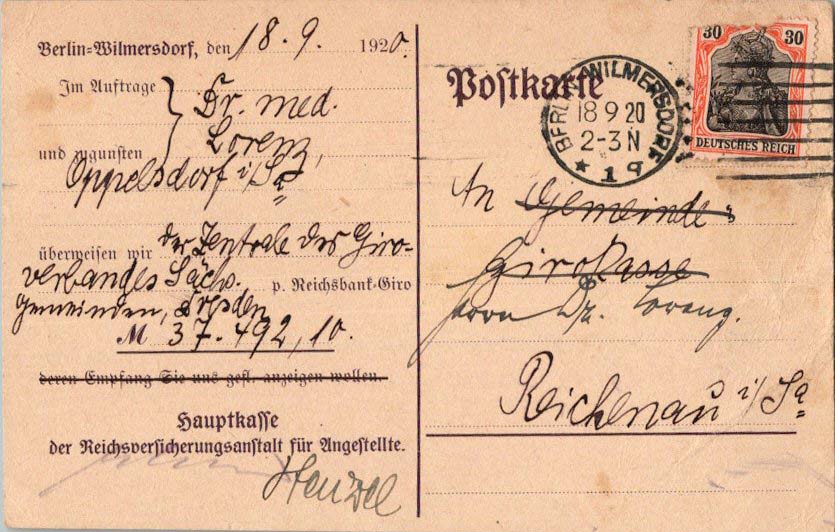 Berlin-Wilmersdorf, den 18. 9. 1920.
Im Auftrage
Dr. med.
Lorenz,
und zugunsten
Oppelsdorf i/Sa
überweisen wir der Zentrale des Giro-
verbandes Sächs. p. Reichsbank-Giro
Gemeinden, Dresden
M 37.492,10.
deren Empfang Sie uns gefl. anzeigen wollen.
Hauptkasse
der Reichsversicherungsanstalt für Angestellte.
Postkarte
BERLIN-WILMERSDORF
18 9 20
2-3 N
* 1 q
30 30
DEUTSCHES REICH
An Gemeinde-
Girokasse
Herrn Dr. Lorenz.
Reichenau i/Sa